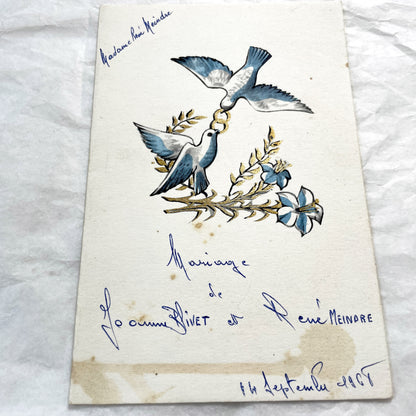 Madame René Meindre
Mariage
de
Joanne RIVET et René MEINDRE
14 Septembre